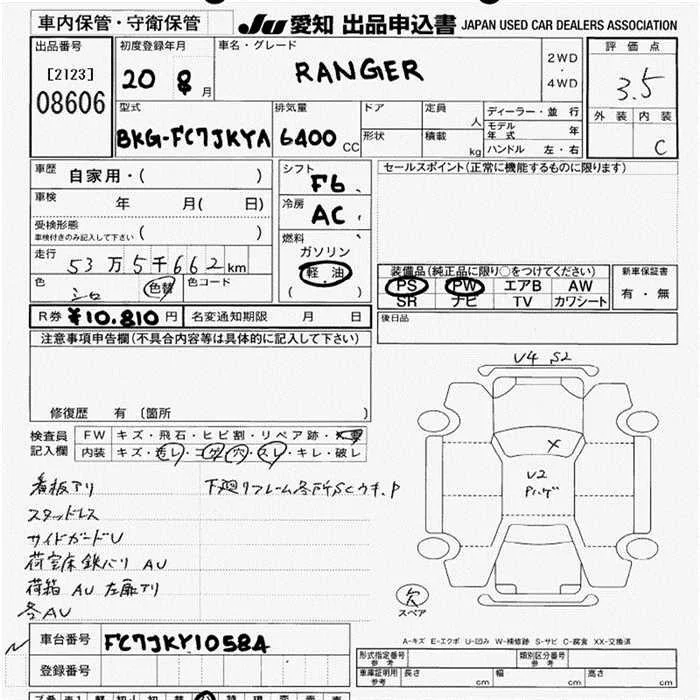 車内保管・守衛保管
JU 愛知 出品申込書 JAPAN USED CAR DEALERS ASSOCIATION
出品番号
[2123]
08606
初度登録年月
20 8 月
車名・グレード
RANGER
2WD
・
4WD
評価点
3.5
外装 内装
C
型式
BKG-FC7JKYA
排気量
6400 CC
ドア
形状
定員
人
積載
kg
ディーラー・並行
モデル年式 年
ハンドル 左・右
車歴 自家用・( )
車検 年 月( 日)
受検形態
車検付きのみ記入して下さい ( )
走行 53万5千662km
色 シロ 色替 色コード
シフト
F6
冷房
AC
燃料
ガソリン
軽油
( )
セールスポイント(正常に機能するものに限ります)
装備品(純正品に限り○をつけてください)
PS PW エアB AW
SR ナビ TV カワシート
新車保証書
有・無
R券 ¥10.810 円 名変通知期限 月 日
後日品
注意事項申告欄(不具合内容等は具体的に記入して下さい)
修復歴 有 〔箇所 〕
検査員
記入欄
FW キズ・飛石・ヒビ割・リペア跡・
内装 キズ・汚レ・コゲ・穴・スレ・キレ・破レ
看板アリ
下廻リフレーム各所SCウキ.P
スタッドレス
サイドガードU
荷室床鉄バリ AU
荷箱 AU 左扉アリ
各AU
V4 S2
×
V2
Pハゲ
欠
スペア
A-キズ E-エクボ U-凹み W-補修跡 S-サビ C-腐食 XX-交換済
車台番号 FC7JKY10584
登録番号
形式指定番号
参考
類別区分番号
参考
車庫証明用
参考
長さ cm 幅 cm 高さ cm